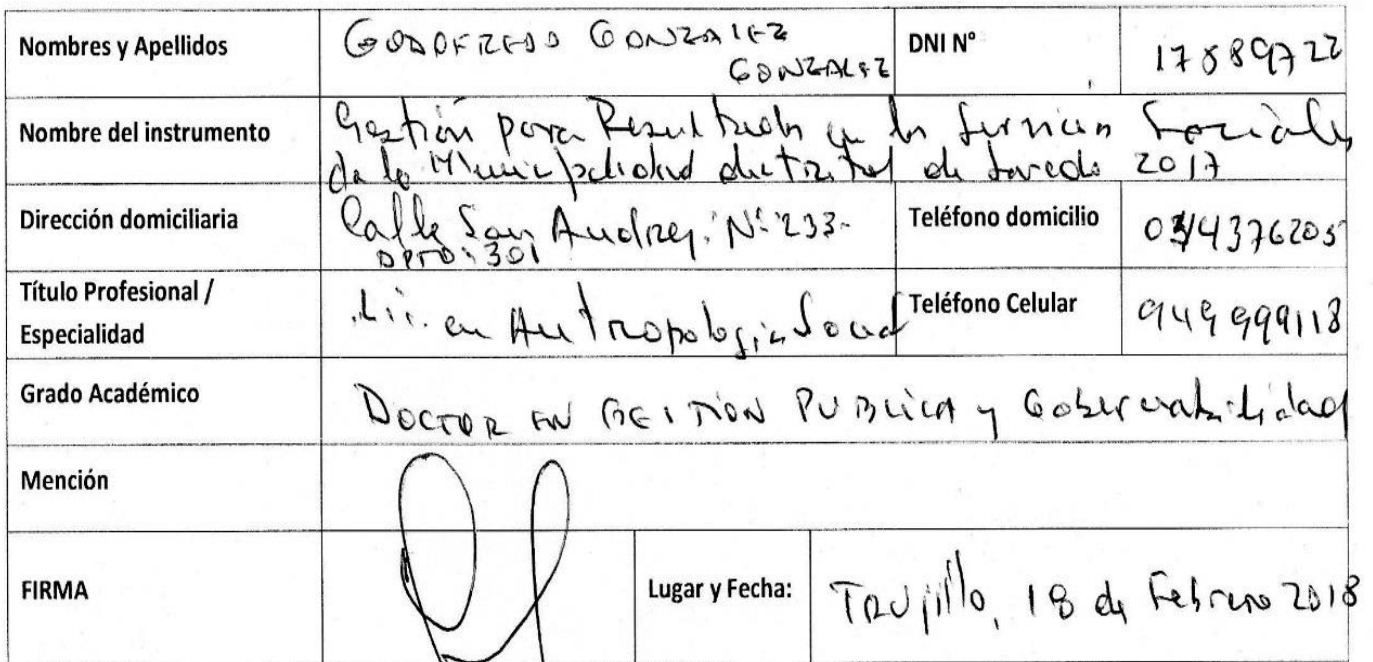 Nombres y Apellidos
GODOFREDO GONZALEZ
GONZALEZ
DNI N°
17889722
Nombre del instrumento
Gestión para Resultados en los Servicios Sociales
de la Municipalidad distrital de Laredo 2017
Dirección domiciliaria
Calle San Andrés. N° 233-
DPTO: 301
Teléfono domicilio
Título Profesional /
Especialidad
Lic. en Antropología Social
Teléfono Celular
949999118
Grado Académico
DOCTOR EN GESTION PUBLICA y Gobernabilidad
Mención
FIRMA
Lugar y Fecha:
Trujillo, 18 de Febrero 2018